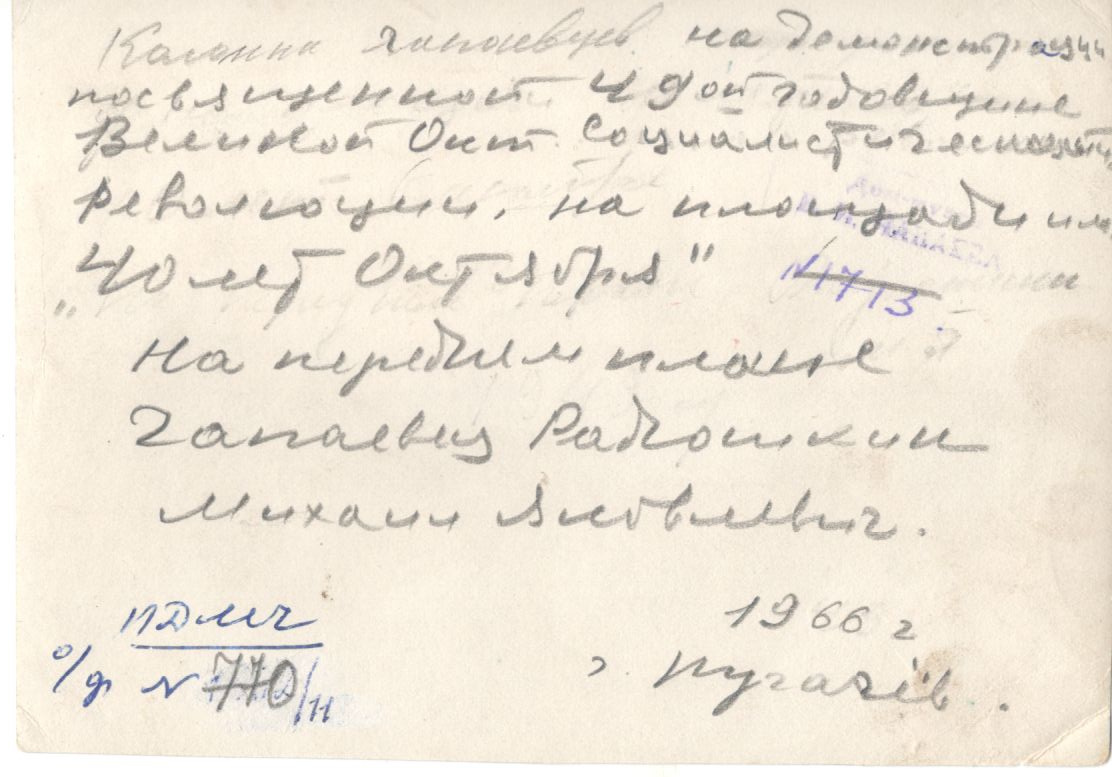 Колонна чапаевцев на демонстрации
посвященной 49ой годовщине
Великой Окт. Социалистической
революции, на площади им.
"40 лет Октября"
N 1713.
На переднем плане
Чапаевец Радюшкин
Михаил Яковлевич.
ПДМЧ
1966 г
о/ф N 770/11
г. Пугачёв.